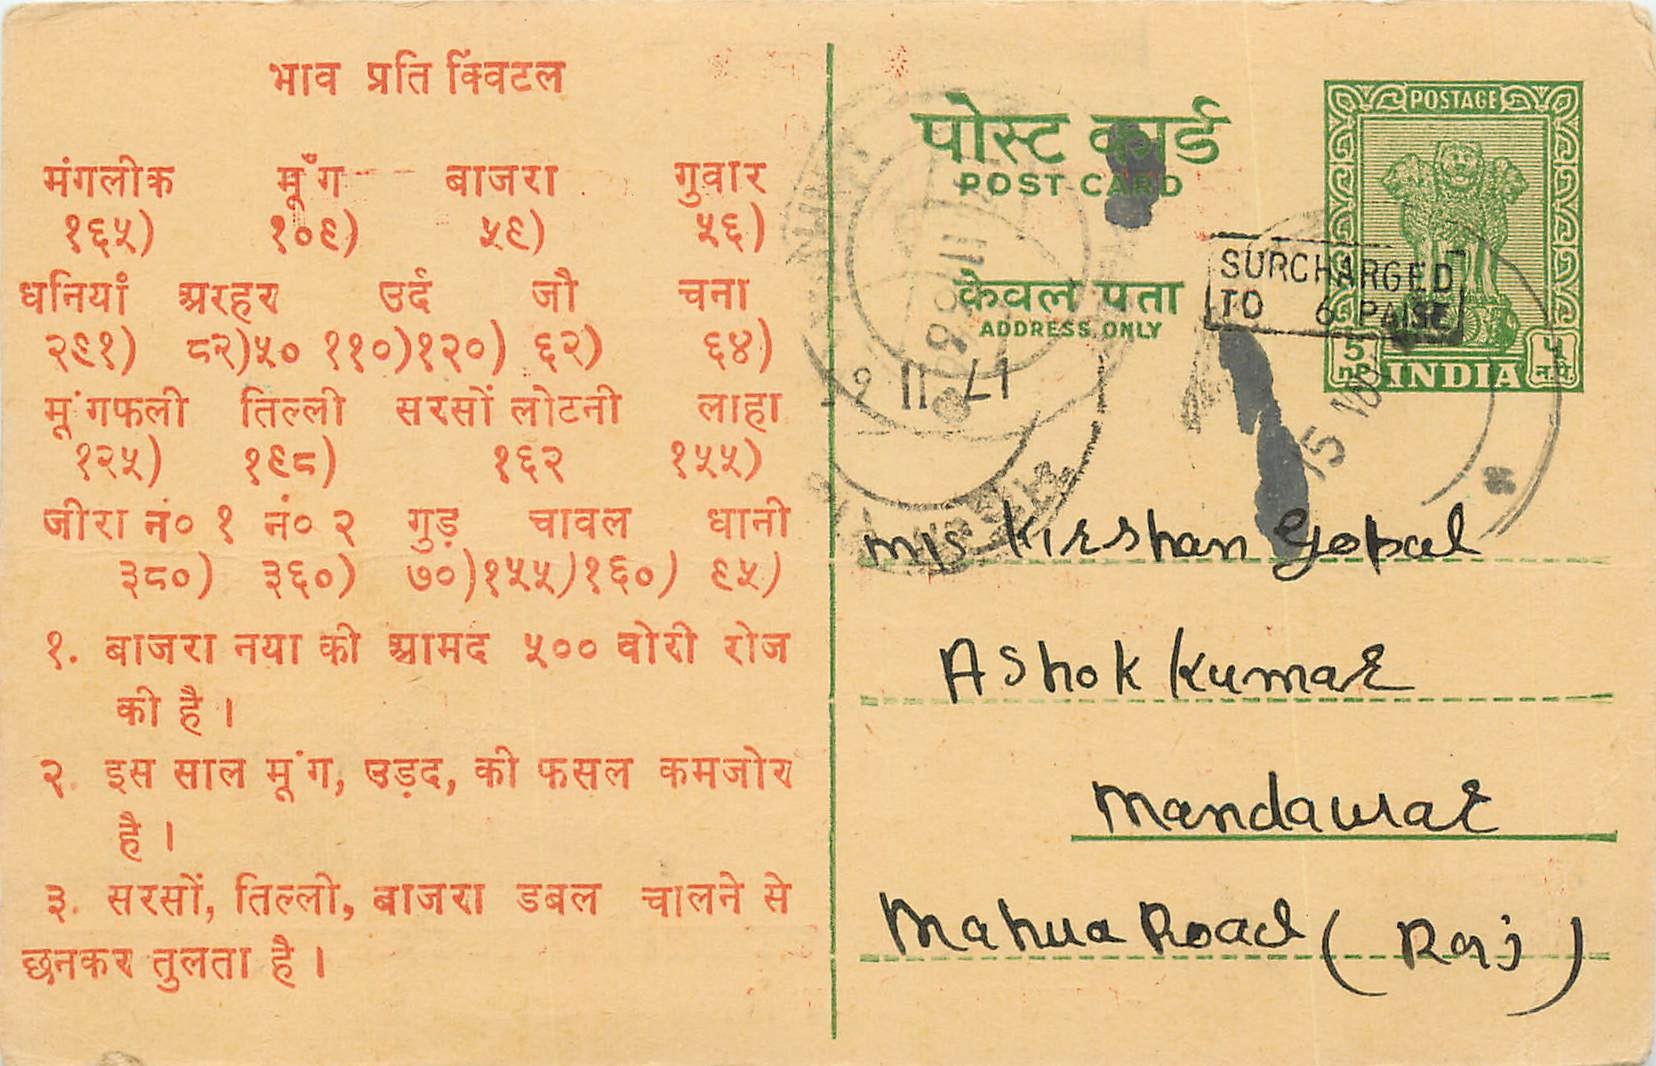 भाव प्रति क्विंटल
मंगलीक मूँग बाजरा गुवार
१६५) १०९) ५९) ५६)
धनियां अरहर उर्द जौ चना
२९१) ८२)५० ११०)१२०) ६२) ६४)
मूंगफली तिल्ली सरसों लोटनी लाहा
१२५) १९८) १६२ १५५)
जीरा नं० १ नं० २ गुड़ चावल धानी
३८०) ३६०) ७०)१५५)१६०) ९५)
१. बाजरा नया की आमद ५०० बोरी रोज
की है ।
२. इस साल मूंग, उड़द, की फसल कमजोर
है ।
३. सरसों, तिल्ली, बाजरा डबल चालने से
छनकर तुलता है ।
पोस्ट कार्ड
POST CARD
केवल पता
ADDRESS ONLY
POSTAGE
SURCHARGED
TO 6 PAISE
5 nP. INDIA ५ न.पै.
M/s Kirshan Gopal
Ashok Kumar
Mandawar
Mahua Road (Raj)